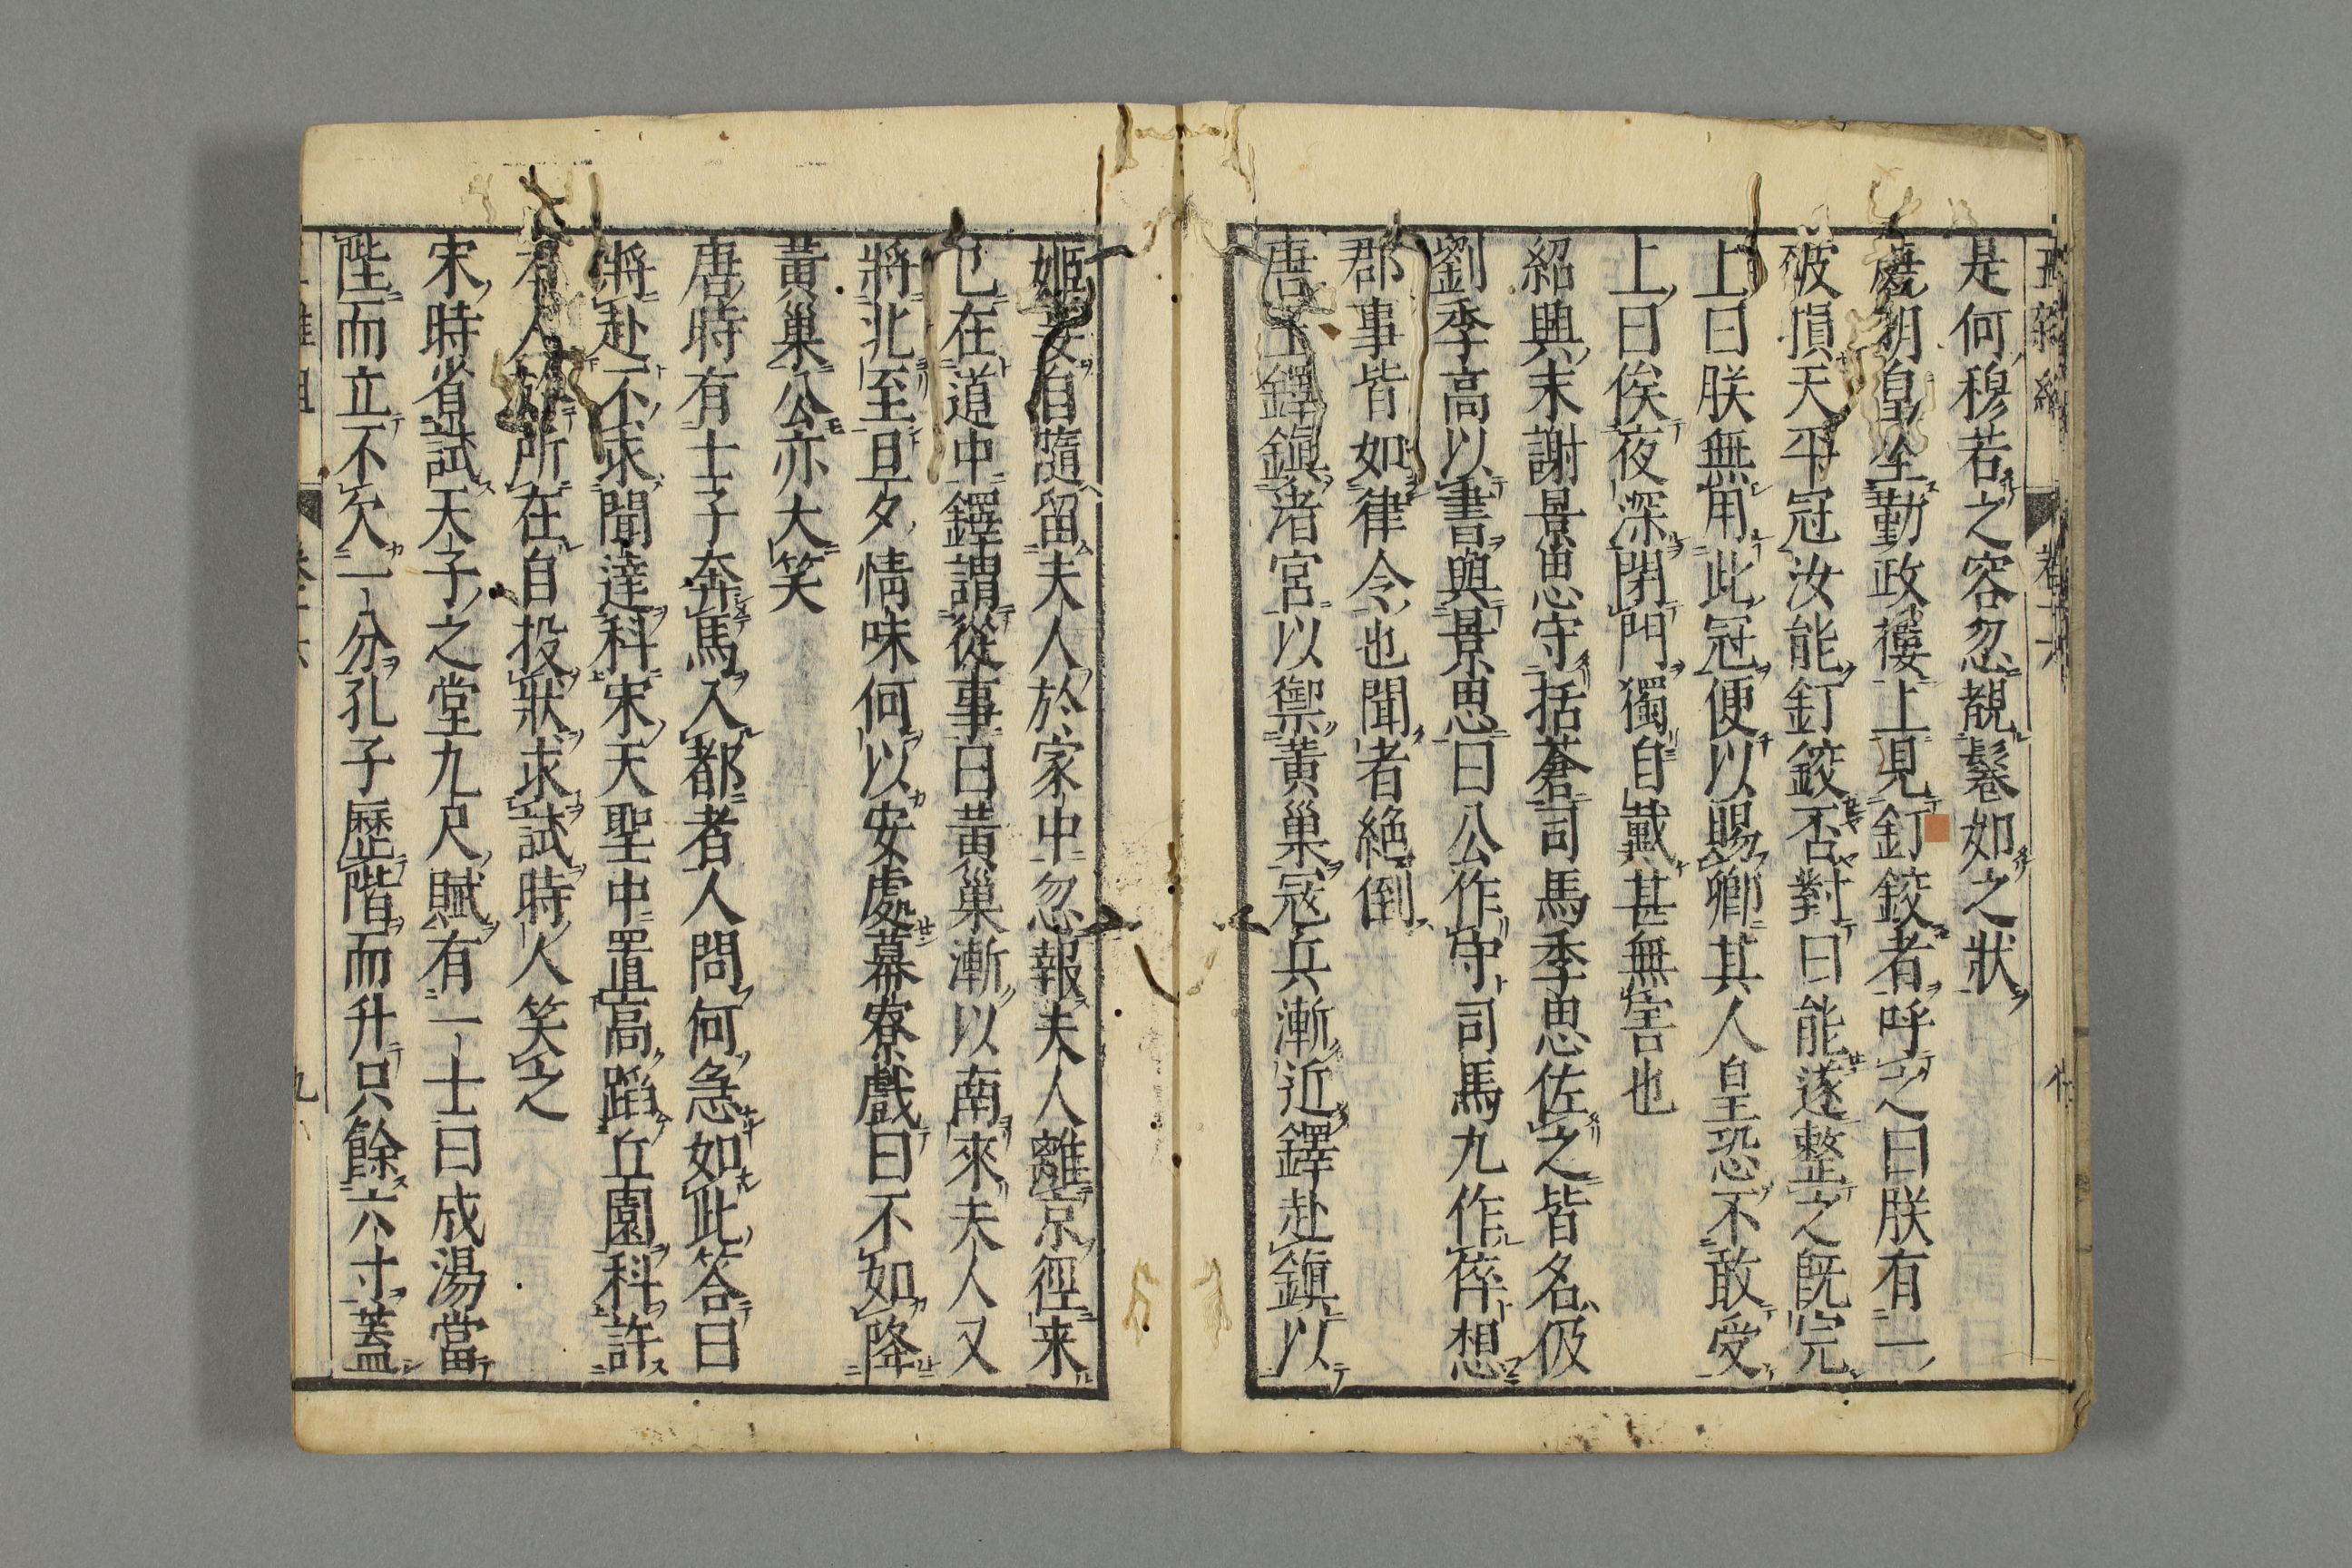 五雜組 卷十六
是何穆若之容忽覩鬈如之狀
唐明皇坐勤政樓上見釘鉸者呼之曰朕有一
破損天平冠汝能釘鉸否對曰能遂整之既完
上曰朕無用此冠便以賜卿其人皇恐不敢受
上曰俟夜深閉門獨自戴甚無害也
紹興末謝景思守括蒼司馬季思佐之皆名伋
劉季高以書與景思曰公作守司馬九作倅想
郡事皆如律令也聞者絶倒
唐王鐸鎮渚宮以禦黃巢寇兵漸近鐸赴鎮以
姬妾自隨留夫人於家中忽報夫人離京徑来
已在道中鐸謂從事曰黃巢漸以南來夫人又
將北至旦夕情味何以安處幕寮戲曰不如降
黃巢公亦大笑
唐時有士子奔馬入都者人問何急如此答曰
將赴不求聞達科宋天聖中置高蹈丘園科許
有人於所在自投狀求試時人笑之
宋時省試天子之堂九尺賦有一士曰成湯當
陛而立不欠一分孔子歷階而升只餘六寸蓋
五雜組 卷十六 九